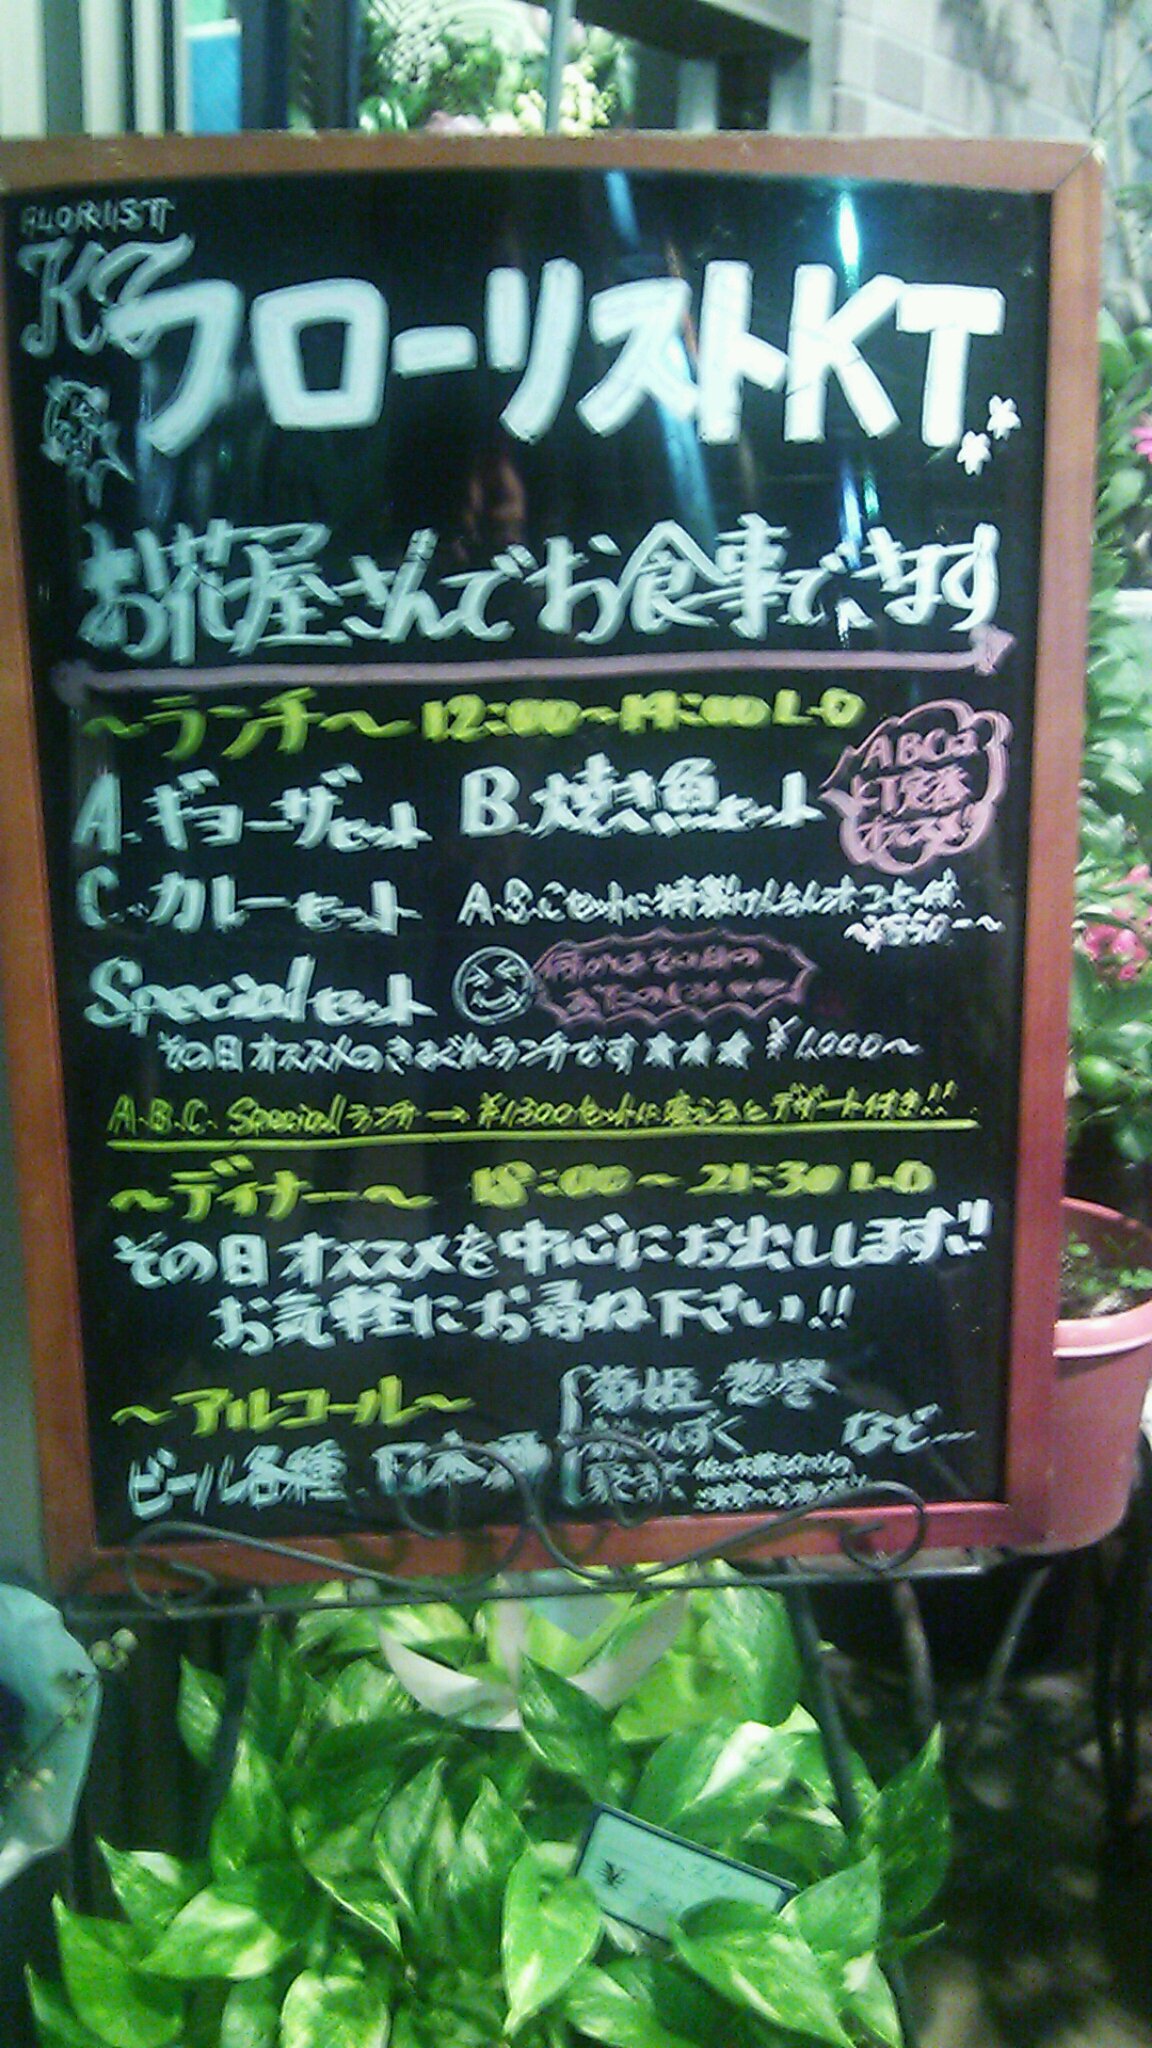 FLORIST
KT
フローリストKT
お花屋さんでお食事できます
～ランチ～ 12:00～14:00 L・O
A.ギョーザセット B.焼き魚セット
ABCは
KT定番
オススメ!!
C.カレーセット A.B.Cセットに特製けんちんorコーヒー付
～¥850-～
Specialセット
何かはその日の
おたのしみ
その日オススメのきまぐれランチです★★★ ¥1,000～
A.B.C. Specialランチ→¥1300セットに変えるとデザート付き!!
～ディナー～ 18:00～21:30 L・O
その日オススメを中心にお出しします!!
お気軽にお尋ね下さい!!
～アルコール～
ビール各種 日本酒
菊姫 惣譽
など…